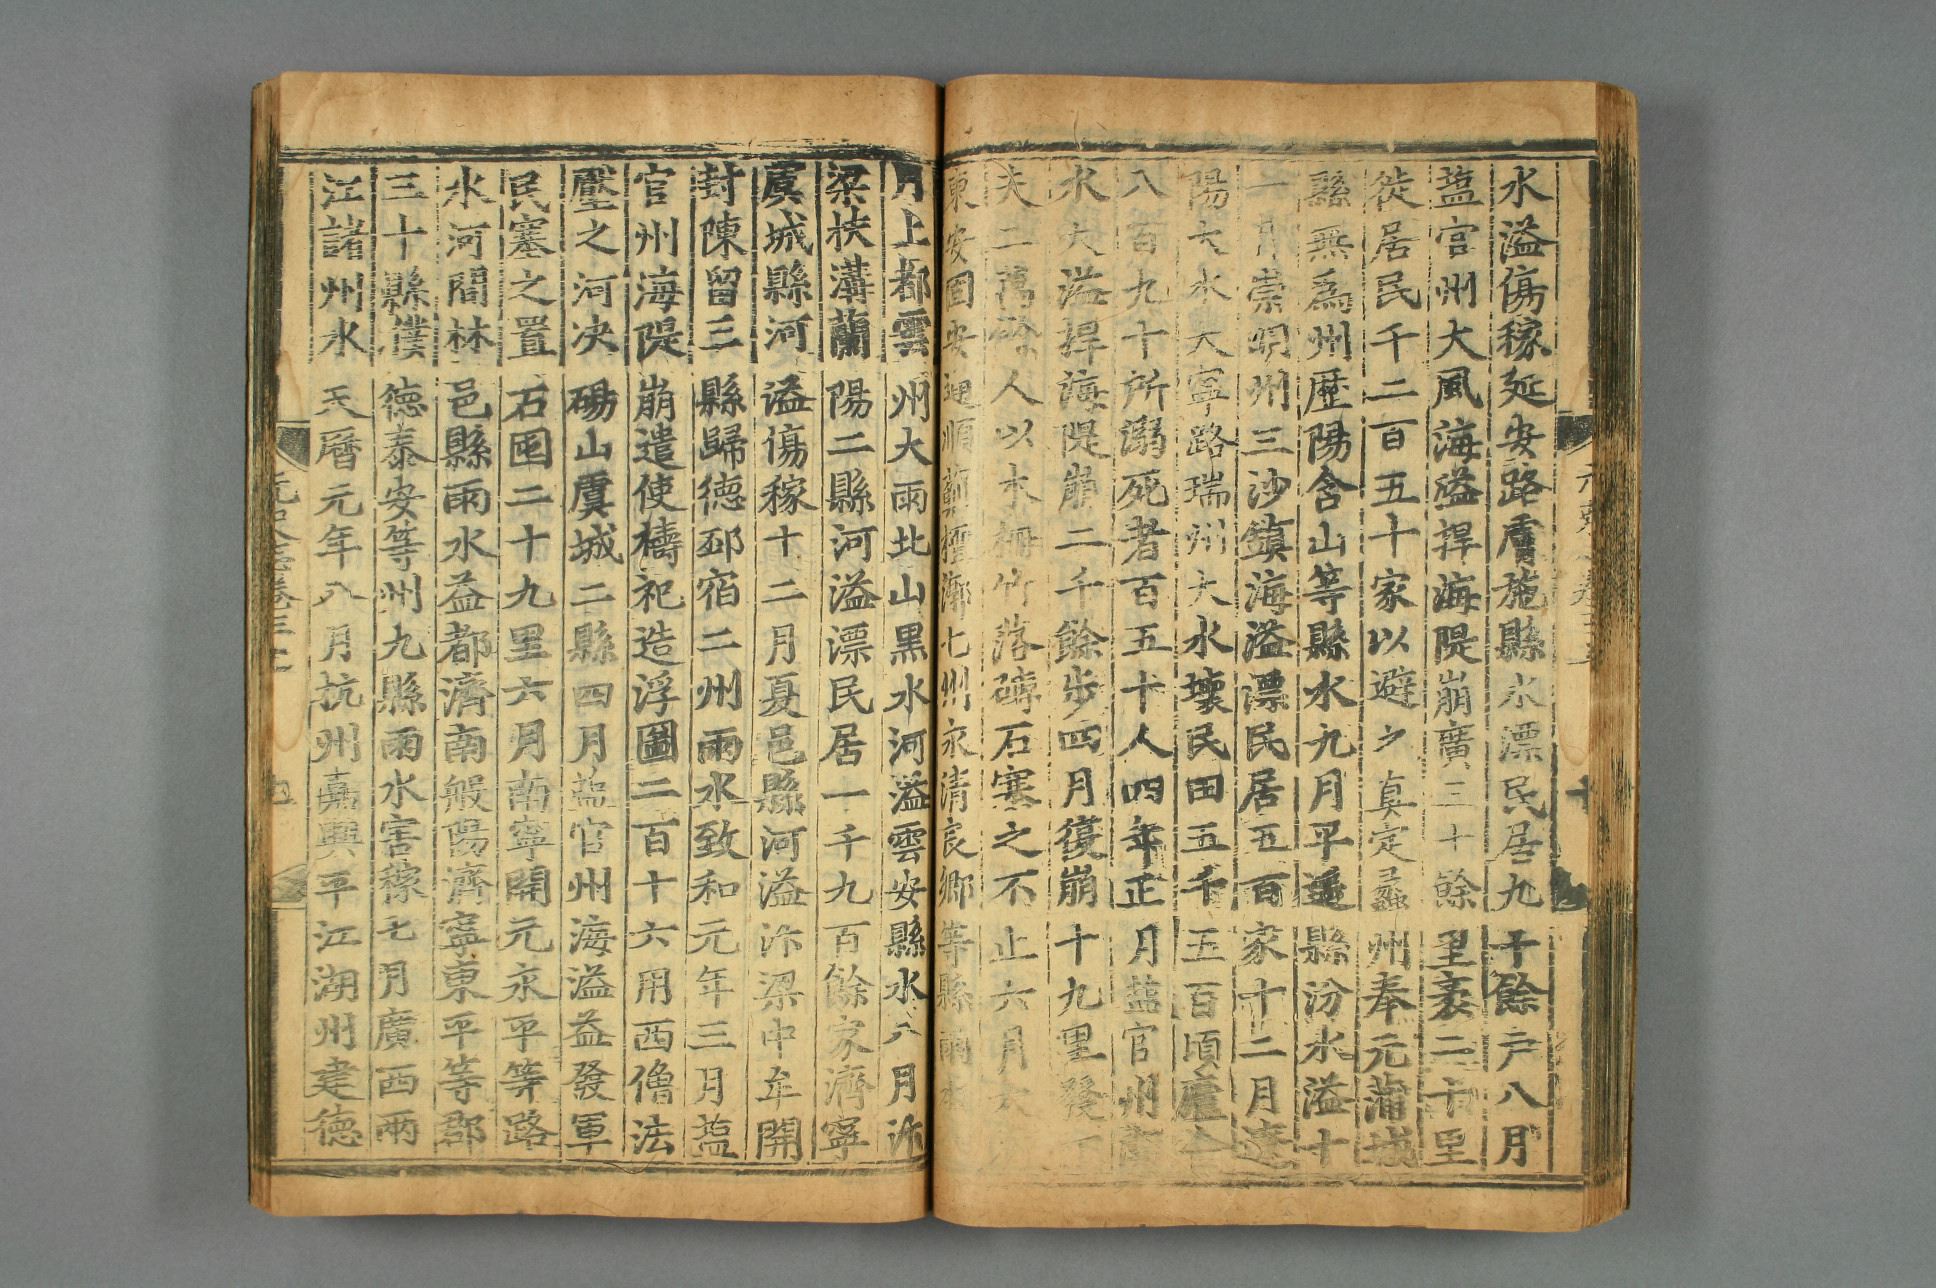 水溢傷稼延安路膚施縣水漂民居九十餘戸八月
鹽官州大風海溢捍海隄崩廣三十餘里袤二十里
徙居民千二百五十家以避之真定蠡州奉元蒲城
縣無爲州歷陽含山等縣水九月平遥縣汾水溢十
一月崇明州三沙鎮海溢漂民居五百家十二月遼
陽大水大寧路瑞州大水壞民田五千五百頃廬舍
八百九十所溺死者百五十人四年正月鹽官州
水大溢捍海隄崩二千餘步四月復崩十九里發
夫二萬餘人以木柵竹落磚石塞之不止六月大
東安固安通順薊檀漷七州永清良鄉等縣雨水
月上都雲州大雨北山黑水河溢雲安縣水八月汴
梁扶溝蘭陽二縣河溢漂民居一千九百餘家濟寧
虞城縣河溢傷稼十二月夏邑縣河溢汴梁中牟開
封陳留三縣歸德邳宿二州雨水致和元年三月鹽
官州海隄崩遣使禱祀造浮圖二百十六用西僧法
壓之河决碭山虞城二縣四月鹽官州海溢益發軍
民塞之置石囤二十九里六月南寧開元永平等路
水河間林邑縣雨水益都濟南般陽濟寧東平等郡
三十縣濮德泰安等州九縣雨水害稼七月廣西兩
江諸州水天曆元年八月杭州嘉興平江湖州建德
元史志卷三上